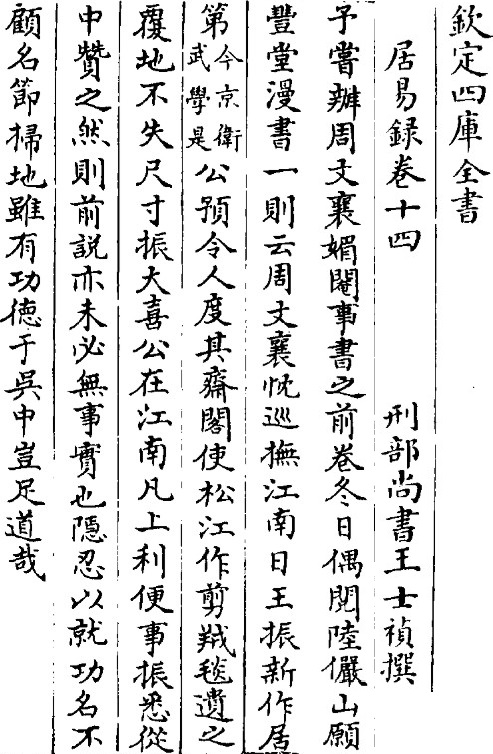 欽定四庫全書
居易録卷十四
刑部尚書王士禎撰
予嘗辦周文襄媚閹事書之前卷冬日偶閱陸儼山願
豐堂漫書一則云周文襄忱巡撫江南日王振新作居
第今京衛武學是公預令人度其齋閣使松江作剪羢毯遺之
覆地不失尺寸振大喜公在江南凡上利便事振悉從
中贊之然則前説亦未必無事實也隱忍以就功名不
顧名節掃地雖有功徳于吳中豈足道哉